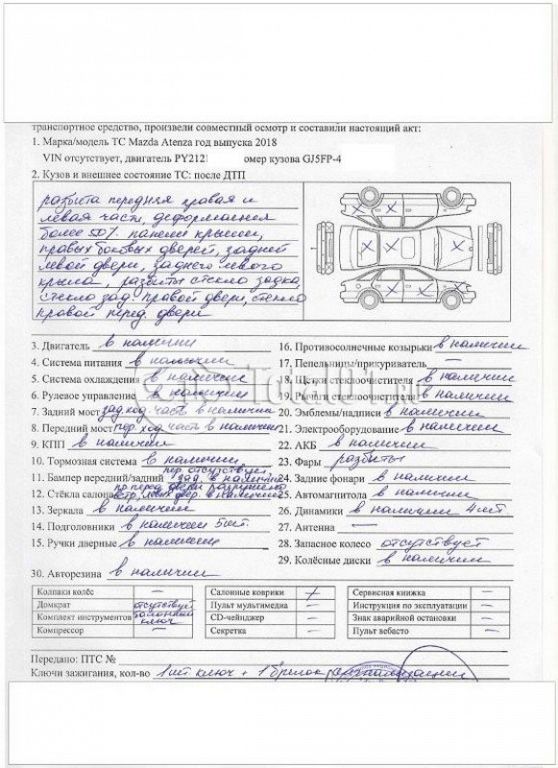 транспортное средство, произвели совместный осмотр и составили настоящий акт:
1. Марка/модель ТС Mazda Atenza год выпуска 2018
VIN отсутствует, двигатель PY212 омер кузова GJ5FP-4
2. Кузов и внешнее состояние ТС: после ДТП
разбита передняя правая и
левая часть, деформация
более 50% панели крыши,
правых боковых дверей, задней
левой двери, заднего левого
крыла, разбиты стекло задка,
стекло зад правой двери, стекло
правой перед. двери
3. Двигатель в наличии
4. Система питания в наличии
5. Система охлаждения в наличии
6. Рулевое управление в наличии
7. Задний мост зад ход. часть в наличии
8. Передний мост пер ход часть в наличии
9. КПП в наличии
10. Тормозная система в наличии
11. Бампер передний/задний пер отсутствует, зад. в наличии
12. Стёкла салона
13. Зеркала в наличии
14. Подголовники в наличии 5 шт.
15. Ручки дверные в наличии
16. Противосолнечные козырьки в наличии
17. Пепельницы/прикуриватель —
18. Щетки стеклоочистителя в наличии
19. в наличии
20. Эмблемы/надписи в наличии
21. Электрооборудование в наличии
22. АКБ в наличии
23. Фары разбиты
24. Задние фонари в наличии
25. Автомагнитола в наличии
26. Динамики в наличии 4 шт
27. Антенна —
28. Запасное колесо отсутствует
29. Колёсные диски в наличии
30. Авторезина в наличии
Колпаки колёс — Салонные коврики + Сервисная книжка —
Домкрат отсутствует Пульт мультимедиа — Инструкция по эксплуатации —
Комплект инструментов балонный ключ CD-чейнджер — Знак аварийной остановки —
Компрессор — Секретка — Пульт вебасто —
Передано: ПТС №
Ключи зажигания, кол-во 1 шт ключ + 1 брелок сигнализации
Total01.ru